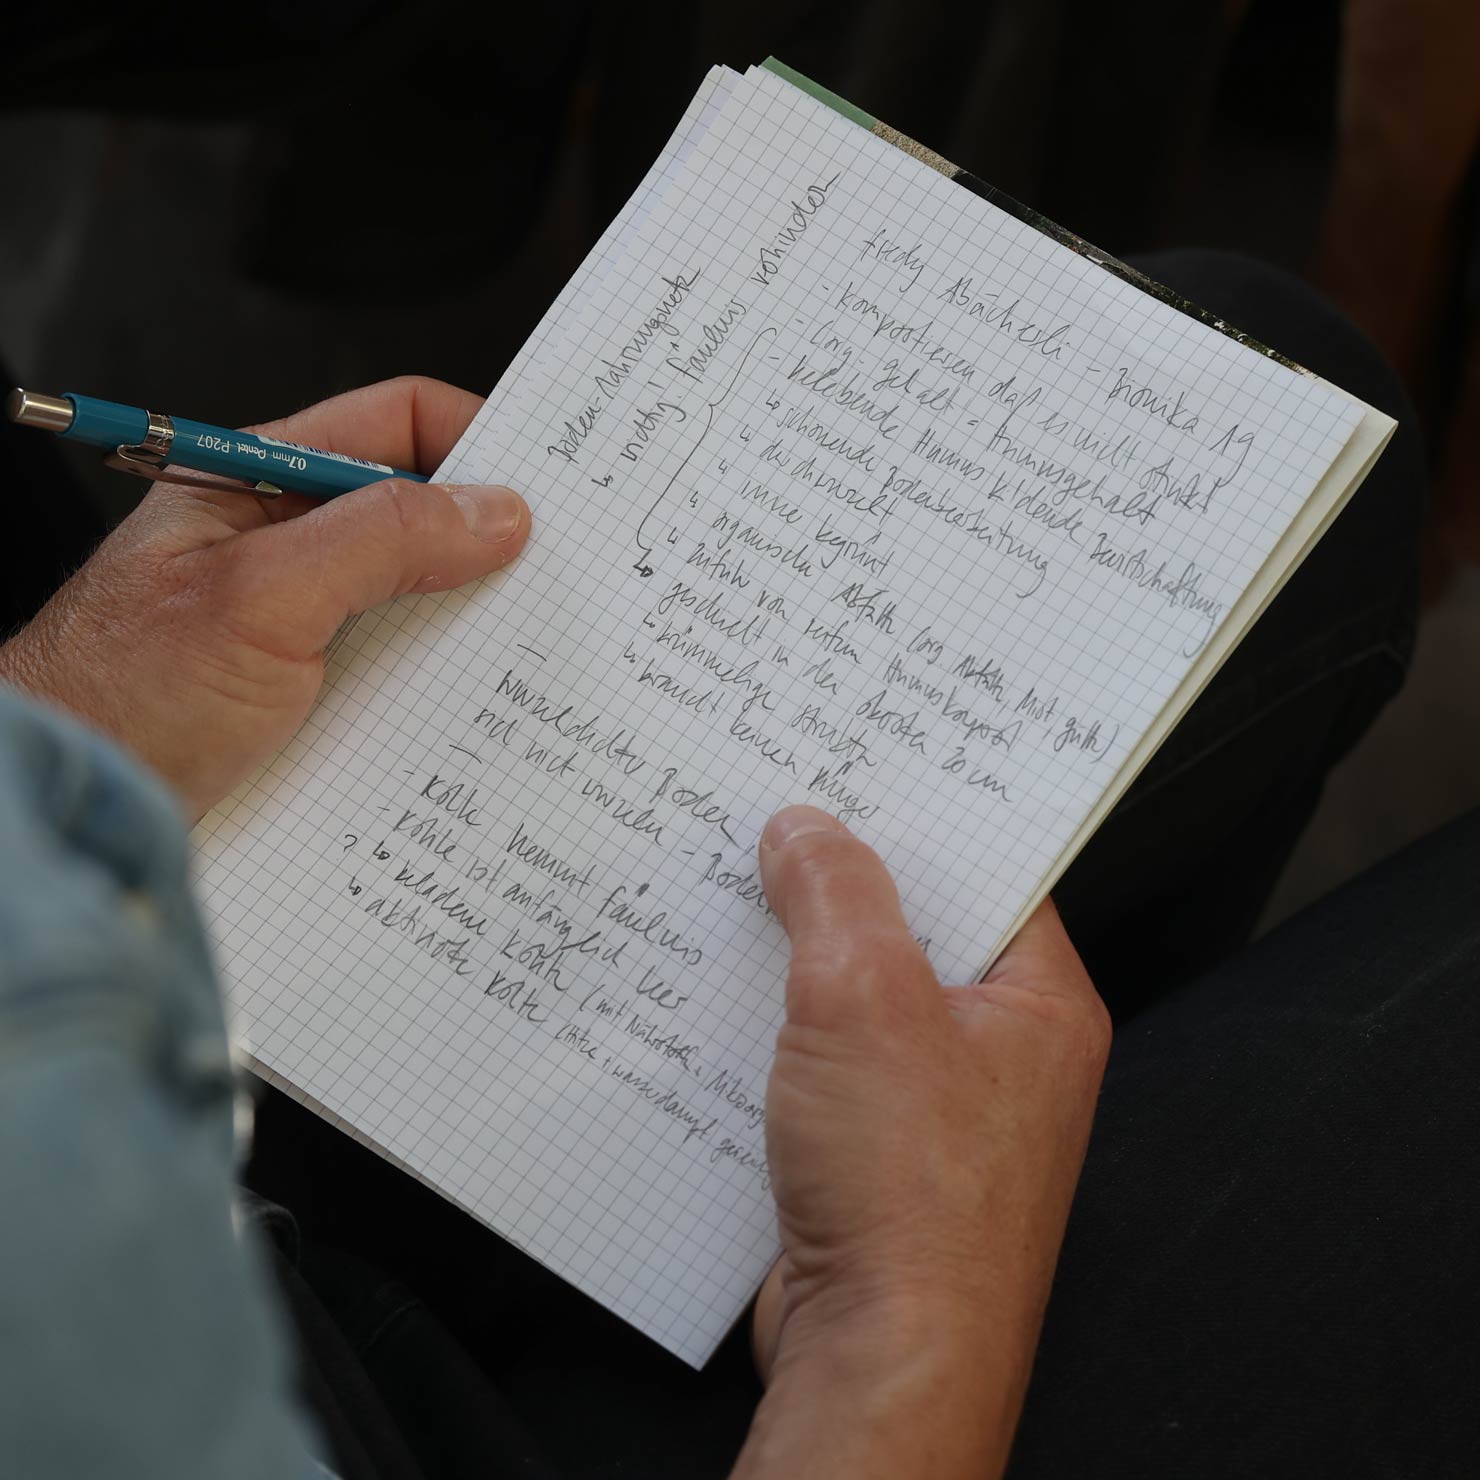 Fredy Abächerli - Bionika AG
- Kompostieren daß es nicht stinkt
- (org. gehalt = Humusgehalt
- belebende Humus bildende Bewirtschaftung
↳ schonende Bodenbearbeitung
↳ durchwurzelt
↳ immer begrünt
↳ organische Abfälle (org. Abfälle, Mist, gülle)
↳ Zufuhr von reifem Humuskompost
↳ geschieht in den obersten 20 cm
↳ krümmelige Struktur
↳ braucht keinen Dünger
Boden-Nahrungsnetz
↳ wichtig! Fäulnis verhindern
—
sich nicht wurzeln - Boden
—
- Kohle hemmt Fäulnis
- Kohle ist anfänglich leer
? ↳ beladene Kohle (mit Nährstoffen, Mikroorg
↳ aktivierte Kohle (Hitze + wasserdampf gereinig
0.7mm Pentel P207